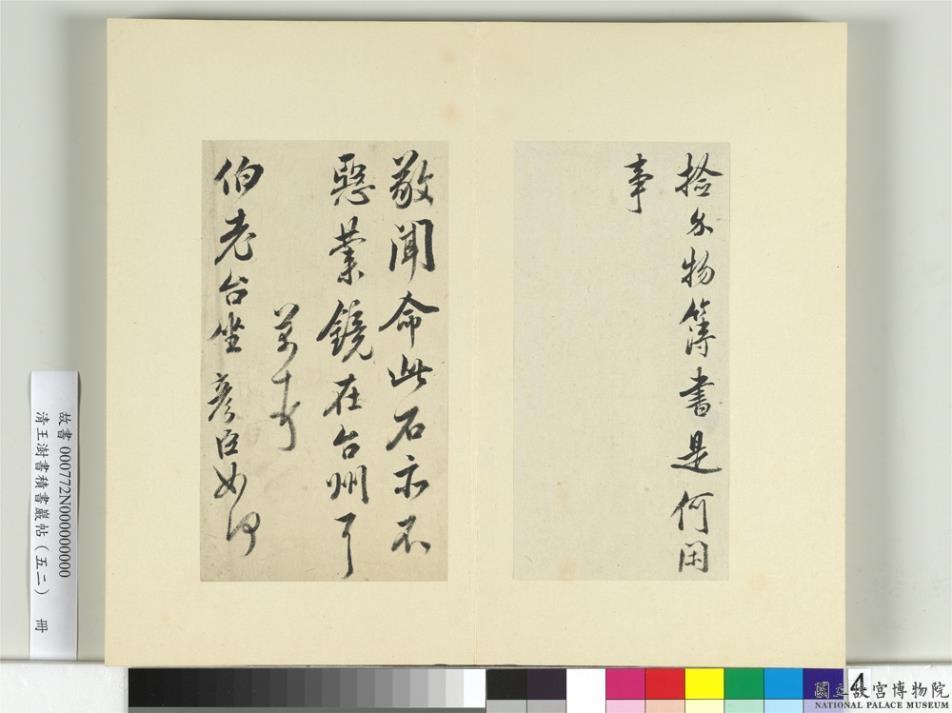 拾分物簿書是何閑
事
敬聞命此石亦不
惡業鏡在台州了
萬
伯老台坐 彦臣
故書 000772N000000000
清王澍書積書巖帖（五二） 冊
4
國立故宮博物院
NATIONAL PALACE MUSEUM